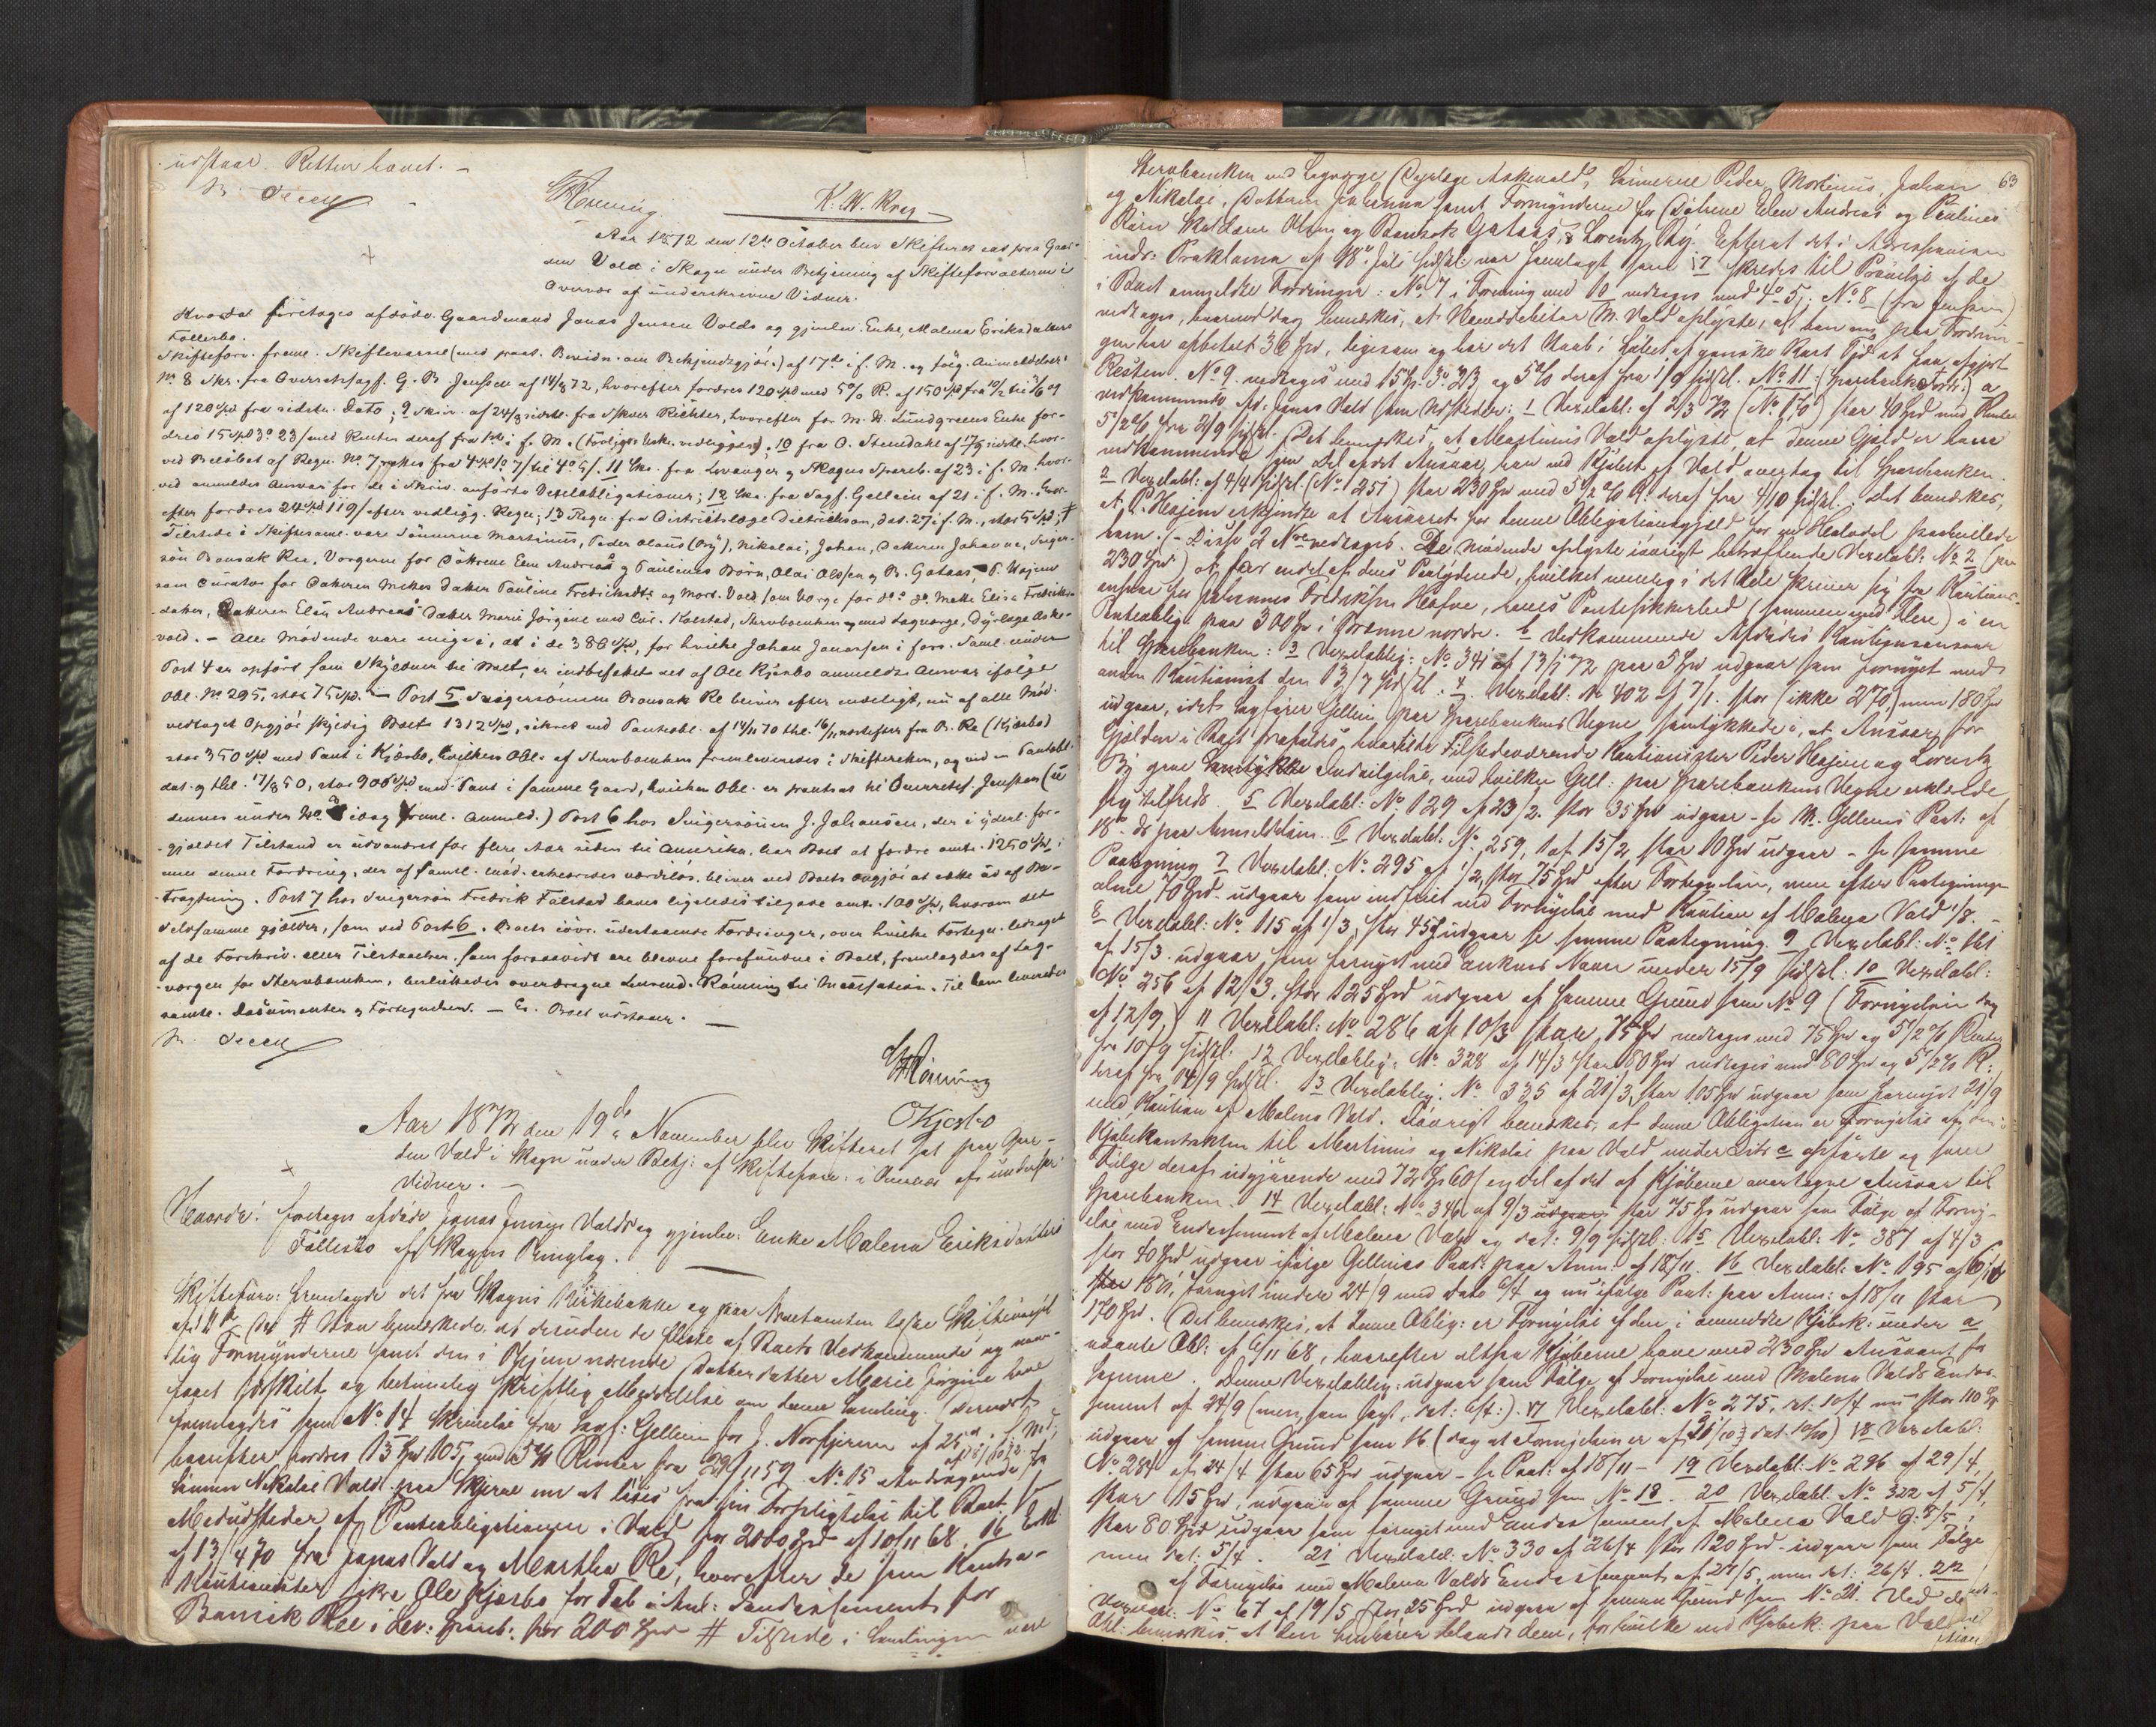 udstaar. Retten hævet. –
Rönning
K. W. Krog
Aar 1872 den 12te October blev Skifteret sat paa Gaar-
den Vold i Skogn under Betjening af Skifteforvalteren i
Overvær af underskrevne Vidner.
Hvorda foretoges afdøde Gaardmand Jonas Jensen Volds og gjenlev. Enke Malena Eriksdatters
Follesbo.
Skifteforv. freml. Skiftevarsel (med paat. Bevidn. om Bekjendtgjör.) af 17de i f. M. og følg. Anmeldelser:
No 8 Skr. fra Overretssagf. G. B. Jenssen af 14/8 72, hvorefter fordres 120 Spd med 5% R. af 150 Spd fra
af 120 Spd fra sidste Dato; 9 Skriv. af 24/8 sidstl. fra Skriver Richter, hvorefter for M. H. Lundgreens Enke for-
dres 15 Spd 3 o 23 med Renter deraf fra 1ste i f. M. 10 fra O. Stendahl af
ved Beløbet af Regn. No 7 11 fra Levanger og Skogns Spareb. af 23 i f. M. hvor-
ved anmeldes Ansvar for de i Skriv. anførte Vexelobligationer; 12 fra Sagf. Gellein af 21 i f. M. hvor-
efter fordres 24 Spd efter vedlagt Regn.; 13 Regn. fra Districtslæge Dietrichson, dat. 27 i f. M., stor 5 Spd;
Tilstede i Skiftesaml. vare Sönnerne Martinus, Peder Olaus (Bry), Nikolai, Johan, Datteren Johanna, Sviger-
sön Baroak Ree, Vergerne for Döttrene Elen Andreas og Paulines Börn, Olai Olsen og B. Gotaas, P. Hojem
som Curator for Datteren Mettes Datter Pauline Fredriksdt. og Mort. Vold som Verge for do do Mette Elise Fredriks-
datter, Datteren Elen Andreas Datter Marie Jörgine med Cur. Kolstad, Stervboenken med Lagværge, Dyrlæge Aske-
vold. – Alle Mödende vare enige i, at i de 386 Spd, for hvilke Johan Jonassen i forr. Saml. under
Post 4 er opfört som Skyldner til Boet, er indbefattet det af Ole Kjesbo anmeldte Ansvar ifölge
Obl. No 295, stor 75 Spd. – Post 5 Svigersönnen Re bliver efter endeligt, nu af alle Möd.
vedtaget Opgjör skyldig Boet 1312 Spd, sikret ved Pantobl. af 14/11 70 thl. 16/11 næstefter fra B. Re (Kjesbo)
stor 350 Spd med Pant i Kjesbo, hvilken Obl. af Stervboenken fremleveredes i Skifteretten, og ved en Pantobl.
dat. og thl. 17/8 50, stor 906 Spd med Pant i samme Gaard, hvilken Obl. er pantsat til Overretssf. Jenssen (
dennes under No 8 idag freml. Anmeld.) Post 6 hos Svigersönnen J. Johansen, der i yderst for-
gjældet Tilstand er udvandret for flere Aar siden til Amerika, har Boet at fordre omtr. 1250 Spd,
men denne Fordring, der af samtl. Möd. erkjendes værdilös, bliver ved Boets Opgjör at sætte ud af Be-
tragtning. Post 7 hos Svigersön Fredrik Falstad haves ligeledes tilgode omtr. 100 Spd, hvorom det
selvsamme gjælder, som ved Post 6. Boets övr. udestaaende Fordringer, over hvilke Fortegn. ledsaget
af de Forskriv. eller Tilstaaelser, som forsaavidt ere blevne forefundne i Boet, fremlagdes af Lag-
værgen for Stervboenken, besluttedes overdragne Lensmd. Rönning til Incassation. Til ham leveredes
samtl. Dokumenter og Fortegnelsen. – Boet udstaar. –
Rönning
OKjesbo
Aar 1872 den 19de November blev Skifteret sat paa Gaar-
den Vold i Skogn under Betj: af Skifteforv: i Overvær af underskr:
Vidner. –
Hvorda: foretoges afdøde Jonas Jensen Volds og gjenlev: Enke Malena Eriksdatters
Fællesbo af Skogns Præstegj.
Skifteforv: fremlagde det fra Skogns Kirkebakke og paa læste Skiftevarsel
af 11te ds. # Han bemærkede, at desuden de fleste af Boets Vedkommende og nav-
lig Formynderne samt den i Hojem værende Datterdatter Marie Jörgine have
faaet særskilt og betimelig skriftlig Meddelelse om denne Samling. Dernæst
fremlagdes som No 14 Skrivelse fra Sagf: Gellein for J. Norkjern af 25de f. Md,
hvorefter fordres 15 Spd 105 med 5% Renter fra 29/11 59. No 15 Andragende fra
Sönnen Nikolai Vold paa Skjerve om at löses fra sin Forpligtelse til Boet som
Medudsteder af Pantobligationen i Vold for 2000 Spd af 10/11 68. 16 Erkl.
af 13/4 70 fra Jonas Vold og Marthe Re, hvorefter de som Kontra-
Kautionister sikre Ole Kjesbo for Tab i Anl: Endossement for
Baroak Ree i Lev: Spareb: for 200 Spd # Tilstede i Samlingen vare
63
Stervboenken med Lagværge Dyrlæge Askevold, Sönnerne Peder, Martinus, Johan
og Nikolai, Datteren Johanna samt Formynderne for Döttrene Elen Andreas og Paulines
Börn Skolelærer Olsen og Baroak Gotaas, & Lorentz Bry. Efterat det i Adresseavisen
indr: Proklama af 18de Juli sidstl. var fremlagt som 17 skredes til Prövelse af de
i Boet anmeldte Fordringer: No 7 i Forening med 10 vedtages med 4 o 5; No 8 (fra Jenssen)
vedtages, hvorved dog bemærkes, at Hoveddebitor M. Vold oplyste, at han nu paa Fordrin-
gen har afbetalt 36 Spd, ligesom og har det Haab i Löbet af ganske kort Tid at faa afgjort
Resten. No 9 vedtages med 15 Sp. 3 o 23 og 5% deraf fra 1/9 sidstl. No 11 (Sparebankens Fordr.) a
vedkommende Afd: Jonas Vold som Udsteder: 1 Vexelobl: af 2/3 72 (No 170) stor 40 Spd med Renter
5 1/2% fra 2/9 sidstl. Det bemærkes, at Martinus Vold oplyste, at denne Gjæld er ham
vedkommende som Del af det Ansvar, han ved Kjöbet af Vold overtog til Sparebanken.
2 Vexelobl: af 4/4 sidstl. (No 251) stor 230 Spd med 5 1/2% R. deraf fra 4/10 sidstl. Det bemærkes,
at P. Hojem erkjendte at Ansvaret for denne Obligationsgjæld for en Halvdel paahvilede
ham. – Disse 2 Nre vedtages. De mødende oplyste iövrigt betræffende Vexelobl: No 2 (paa
230 Spd) at for endel af dens Paalydende, hvilket nemlig i det Hele skriver sig fra Kautions-
ansvar for Johannes Fredriksen Hæfne, haves Pantesikkerhed (sammen med Flere) i en
Panteoblig: paa 300 Spd i nordre. b Vedkommende Afdødes Kautionsansvar
til Sparebanken: 3 Vexeloblig: No 341 af 13/1 72 paa 5 Spd udgaar som fornyet med
anden Kautionist den 13/7 sidstl. 4 Vexelobl: No 402 af 7/1 stor (ikke 270,) men 180 Spd
udgaar, idet Sagförer Gellein paa Sparebankens Vegne samtykkede i, at Ansvaret for
Gjælden i Boet frafaldes, hvortil de Tilstedeværende Kautionister Peder Hojem og Lorentz
Bry gave Samtykke, med hvilken Gell: paa Sparebankens Vegne erklærede
sig tilfreds. 5 Vexelobl: No 129 af 23/2 stor 35 Spd udgaar – se M. Gelleins Paat: af
18 ds paa Anmeldelsen. 6 Vexelobl: No 259, af 15/2 stor 10 Spd udgaar – se samme
Paategning. 7 Vexelobl: No 295 af 1/2, stor 75 Spd efter Fortegnelsen, men efter Paategningen
alene 70 Spd udgaar som indfriet ved Fornyelse med Kaution af Malena Vold 1/8. –
8 Vexelobl: No 115 af 1/3, stor 45 Spd udgaar se samme Paategning. 9 Vexelobl: No 161
af 15/3 udgaar som fornyet med Enkens Navn under 15/9 sidstl: 10 Vexelobl:
No 256 af 12/3, stor 125 Spd udgaar af samme Grund som No 9 (Fornyelsen dog
af 12/9.) 11 Vexelobl: No 286 af 10/3 stor 75 Spd vedtages med 75 Spd og 5 1/2% Renter
fra 10/9 sidstl. 12 Vexeloblig: No 328 af 14/3 stor 80 Spd vedtages med 80 Spd og 5 1/2% R:
deraf fra 14/9 sidstl. 13 Vexeloblig: No 335 af 21/3, stor 105 Spd udgaar som fornyet 21/9
med Kaution af Malena Vold. Iövrigt bemærkes, at denne Obligation er Fornyelse af den i
Kjöbekontrakten til Martinus og Nikolai paa Vold under Litr c opförte og som
Fölge deraf udgjörende med 72 Sp 60 en Del af det af Kjöberne overtagne Ansvar til
Sparebanken. 14 Vexelobl: No 346 af 9/3 stor 75 Sp udgaar som Fölge af Forny-
else med Endossement af Malena Vold og dat: 9/9 sidstl: 15 Vexelobl: No 387 af 4/3
stor 40 Spd udgaar ifölge Gelleins Paat: paa Anm: af 18/11. 16 Vexelobl: No 195 af
1870, fornyet under 24/9 med Dato 6/4 og nu ifölge Paat: paa Anm: af 18/11 stor
170 Spd. (Det bemærkes, at denne Oblig: er Fornyelse af den i anmeldte Kjöbek: under a
nævnte Obl: af 6/11 68, hvorefter altsaa Kjöberne have med 230 Spd Ansvaret for
samme. Denne Vexeloblig: udgaar som Fölge af Fornyelse med Malena Volds Endos-
sement af 24/9 (men som sagt, dat: 6/4:). 17 Vexelobl: No 275, dat: 10/4 nu stor 110 Sp
udgaar af samme Grund som 16 (dog at Fornyelsen er af 31/10 dat. 10/10) 18 Vexelobl:
No 284 af 24/4 stor 65 Spd udgaar – se Paat: af 18/11 – 19 Vexelobl: No 296 af 29/4,
stor 15 Spd, udgaar af samme Grund som No 18. 20 Vexelobl: No 322 af 5/4,
stor 80 Spd udgaar som fornyet med Endossement af Malena Vold 5/5,
men dat: 5/4. 21 Vexelobl: No 330 af 26/4 stor 120 Spd udgaar som Fölge
af Fornyelse med Malena Volds Endossement af 27/5, men dat: 26/4. 22
Vexelobl: No 67 af 19/5 stor 25 Spd udgaar af samme Grund som No 21. Ved de
Obl: bemærkes, at den blandt dem, for hvilke ved Kjöbek: paa Vold